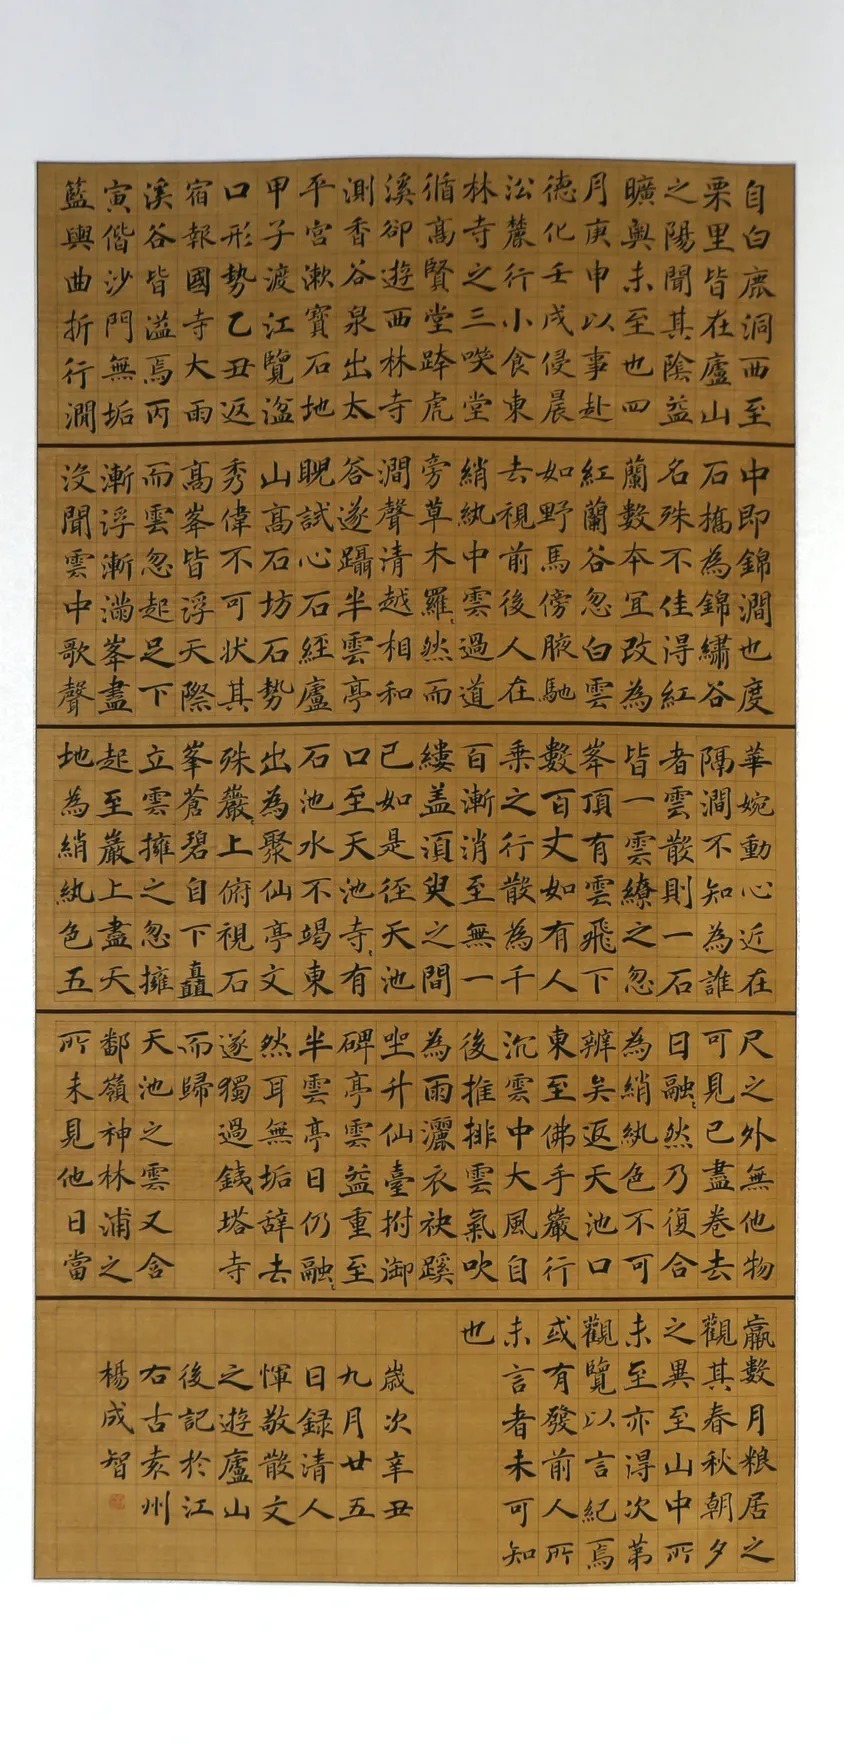 自白鹿洞西至
栗里皆在廬山
之陽聞其陰益
曠奥未至也四
月庚申以事赴
德化壬戌侵晨
沿麓行小食東
林寺之三㗛堂
循高賢堂跡虎
溪卻遊西林寺
測香谷泉出太
平宮漱寶石地
甲子渡江覽湓
口形勢乙丑返
宿報國寺大雨
溪谷皆溢焉丙
寅偕沙門無垢
籃輿曲折行澗
中即錦澗也度
石橋為錦繡谷
名殊不佳得紅
蘭數本宜改為
紅蘭谷忽白雲
如野馬傍腋馳
去視前後人在
綃紈中雲過道
旁草木羅〻然而
澗聲清越相和
答遂躡半雲亭
睨試心石經廬
山高石坊石勢
秀偉不可状其
高峯皆浮天際
而雲忽起足下
漸浮漸滿峯盡
没聞雲中歌聲
華婉動心近在
隔澗不知為誰
者雲散則一石
皆一雲繚之忽
峯頂有雲飛下
數百丈如有人
乗之行散為千
百漸消至無一
縷盖湏臾之間
已如是徑天池
口至天池寺〻有
石池水不竭東
出為聚仙亭文
殊巖上俯視石
峯蒼碧自下矗
立雲擁之忽擁
起至巖上盡天
地為綃紈色五
尺之外無他物
可見已盡卷去
日融〻然乃復合
為綃紈色不可
辨矣返天池口
東至佛手巖行
沉雲中大風自
後推排雲氣吹
為雨灑衣袂蹊
坐升仙臺拊御
碑亭雲益重至
半雲亭日仍融〻
然耳無垢辞去
遂獨過鐵塔寺
而歸
天池之雲又含
鄱嶺神林浦之
所未見他日當
羸數月粮居之
觀其春秋朝夕
之異至山中所
未至亦得次第
觀覽以言紀焉
或有發前人所
未言者未可知
也
歲次辛丑
九月廿五
日録清人
惲敬散文
之遊廬山
後記於江
右古袁州
楊成智